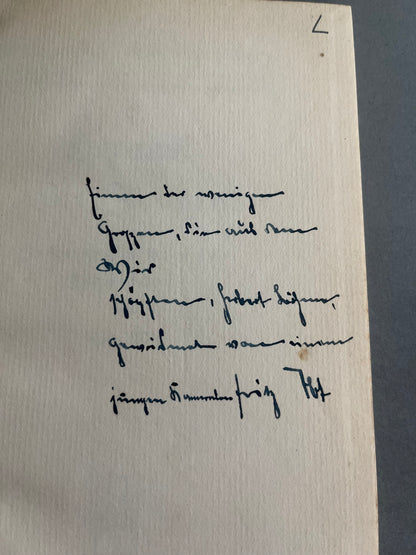 Einem der wenigen
Großen, die aus dem
Wir
schöpften, Herbert Böhme,
gewidmet von einem
jungen Kameraden Fritz